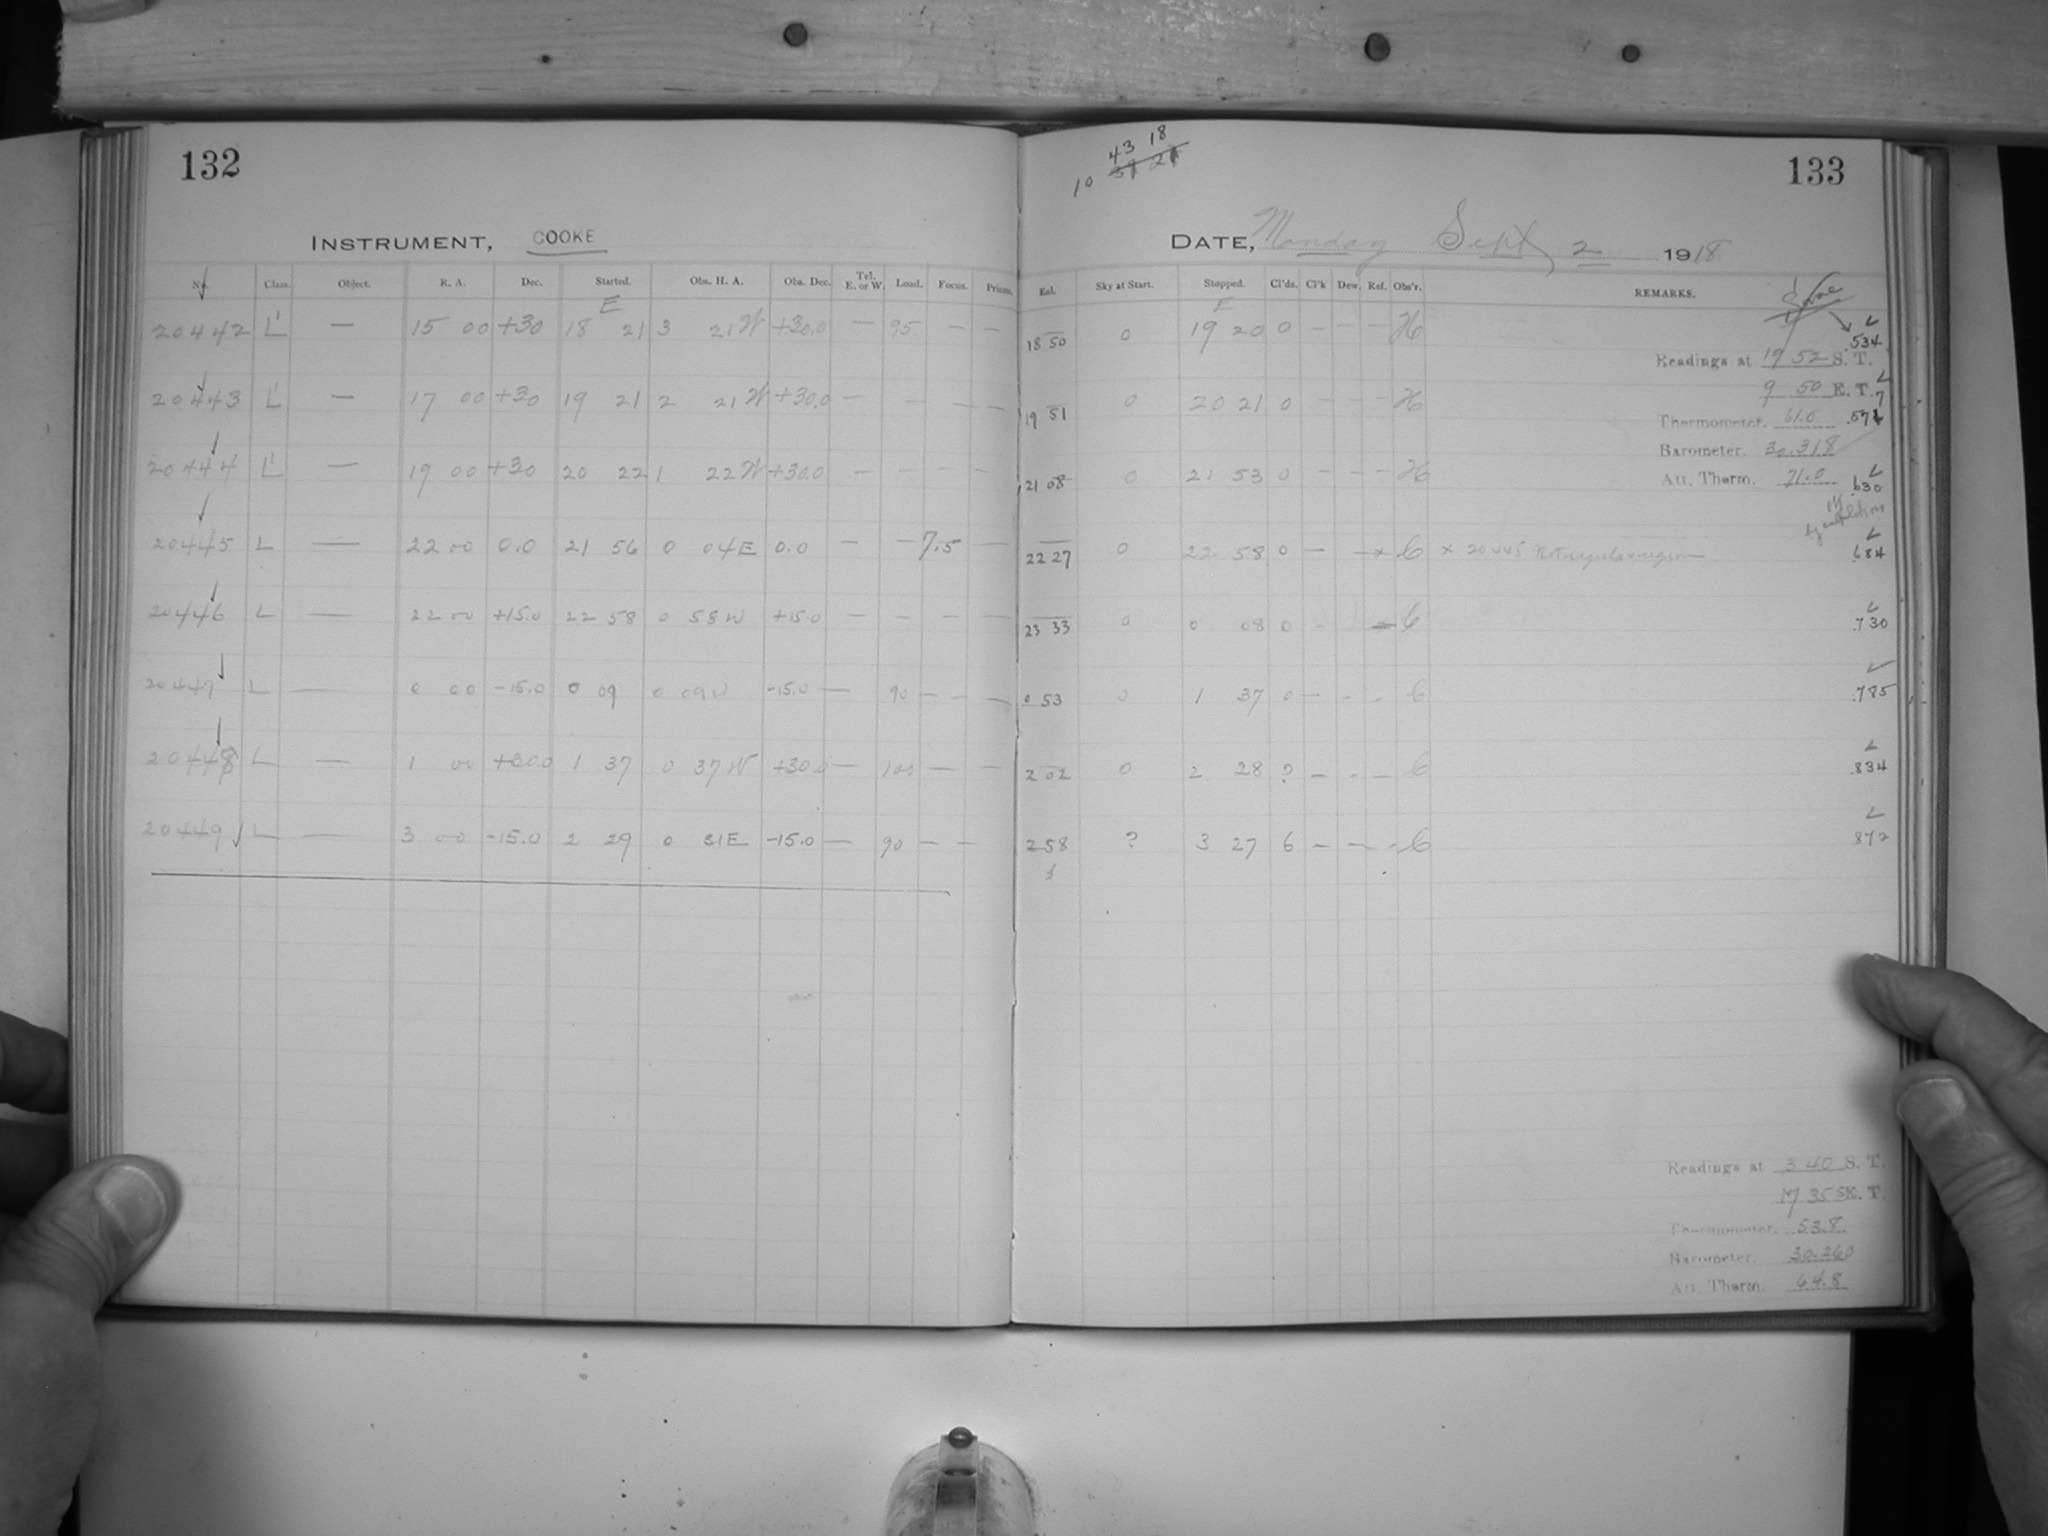 132
INSTRUMENT, COOKE
No. Class. Object. R. A. Dec. Started. Obs. H. A. Obs. Dec. Tel. E. or W. Load. Focus. Prisms.
E
20442 L' — 15 00 +30 18 21 3 21 W +30.0 — 95 — —
20443 L' — 17 00 +30 19 21 2 21 W +30.0 — — — —
20444 L' — 19 00 +30 20 22 1 22 W +30.0 — — — —
20445 L — 22 00 0.0 21 56 0 04 E 0.0 — — 7.5 —
20446 L — 22 00 +15.0 22 58 0 58 W +15.0 — — — —
20447 L — 0 00 -15.0 0 09 0 09 W -15.0 — 90 — — —
20448 L — 1 00 +30.0 1 37 0 37 W +30.0 — 100 — —
20449 L — 3 00 -15.0 2 29 0 31 E -15.0 — 90 — —
133
43 18
10
DATE, Monday Sept 2 1918
Sky at Start. Stopped. Cl'ds. Cl'k Dew. Ref. Obs'r. REMARKS.
18 50 0 19 20 0 — — — H .534
Readings at 19 52 S. T.
9 50 E. T.
19 51 0 20 21 0 — — — H
Thermometer. 61.0
Barometer. 30.318
Att. Therm. 71.0
21 08 0 21 53 0 — — — H .630
22 27 0 22 58 0 — — x C x 20445 Not regular region .684
23 33 0 0 08 0 - — C .730
0 53 0 1 37 0 — - - C .785
2 02 0 2 28 ? — - — C .834
2 58 ? 3 27 6 — — - C .872
Readings at 3 40 S. T.
17 35 E. T.
Thermometer. 53.8
Barometer. 30.260
Att. Therm. 64.8